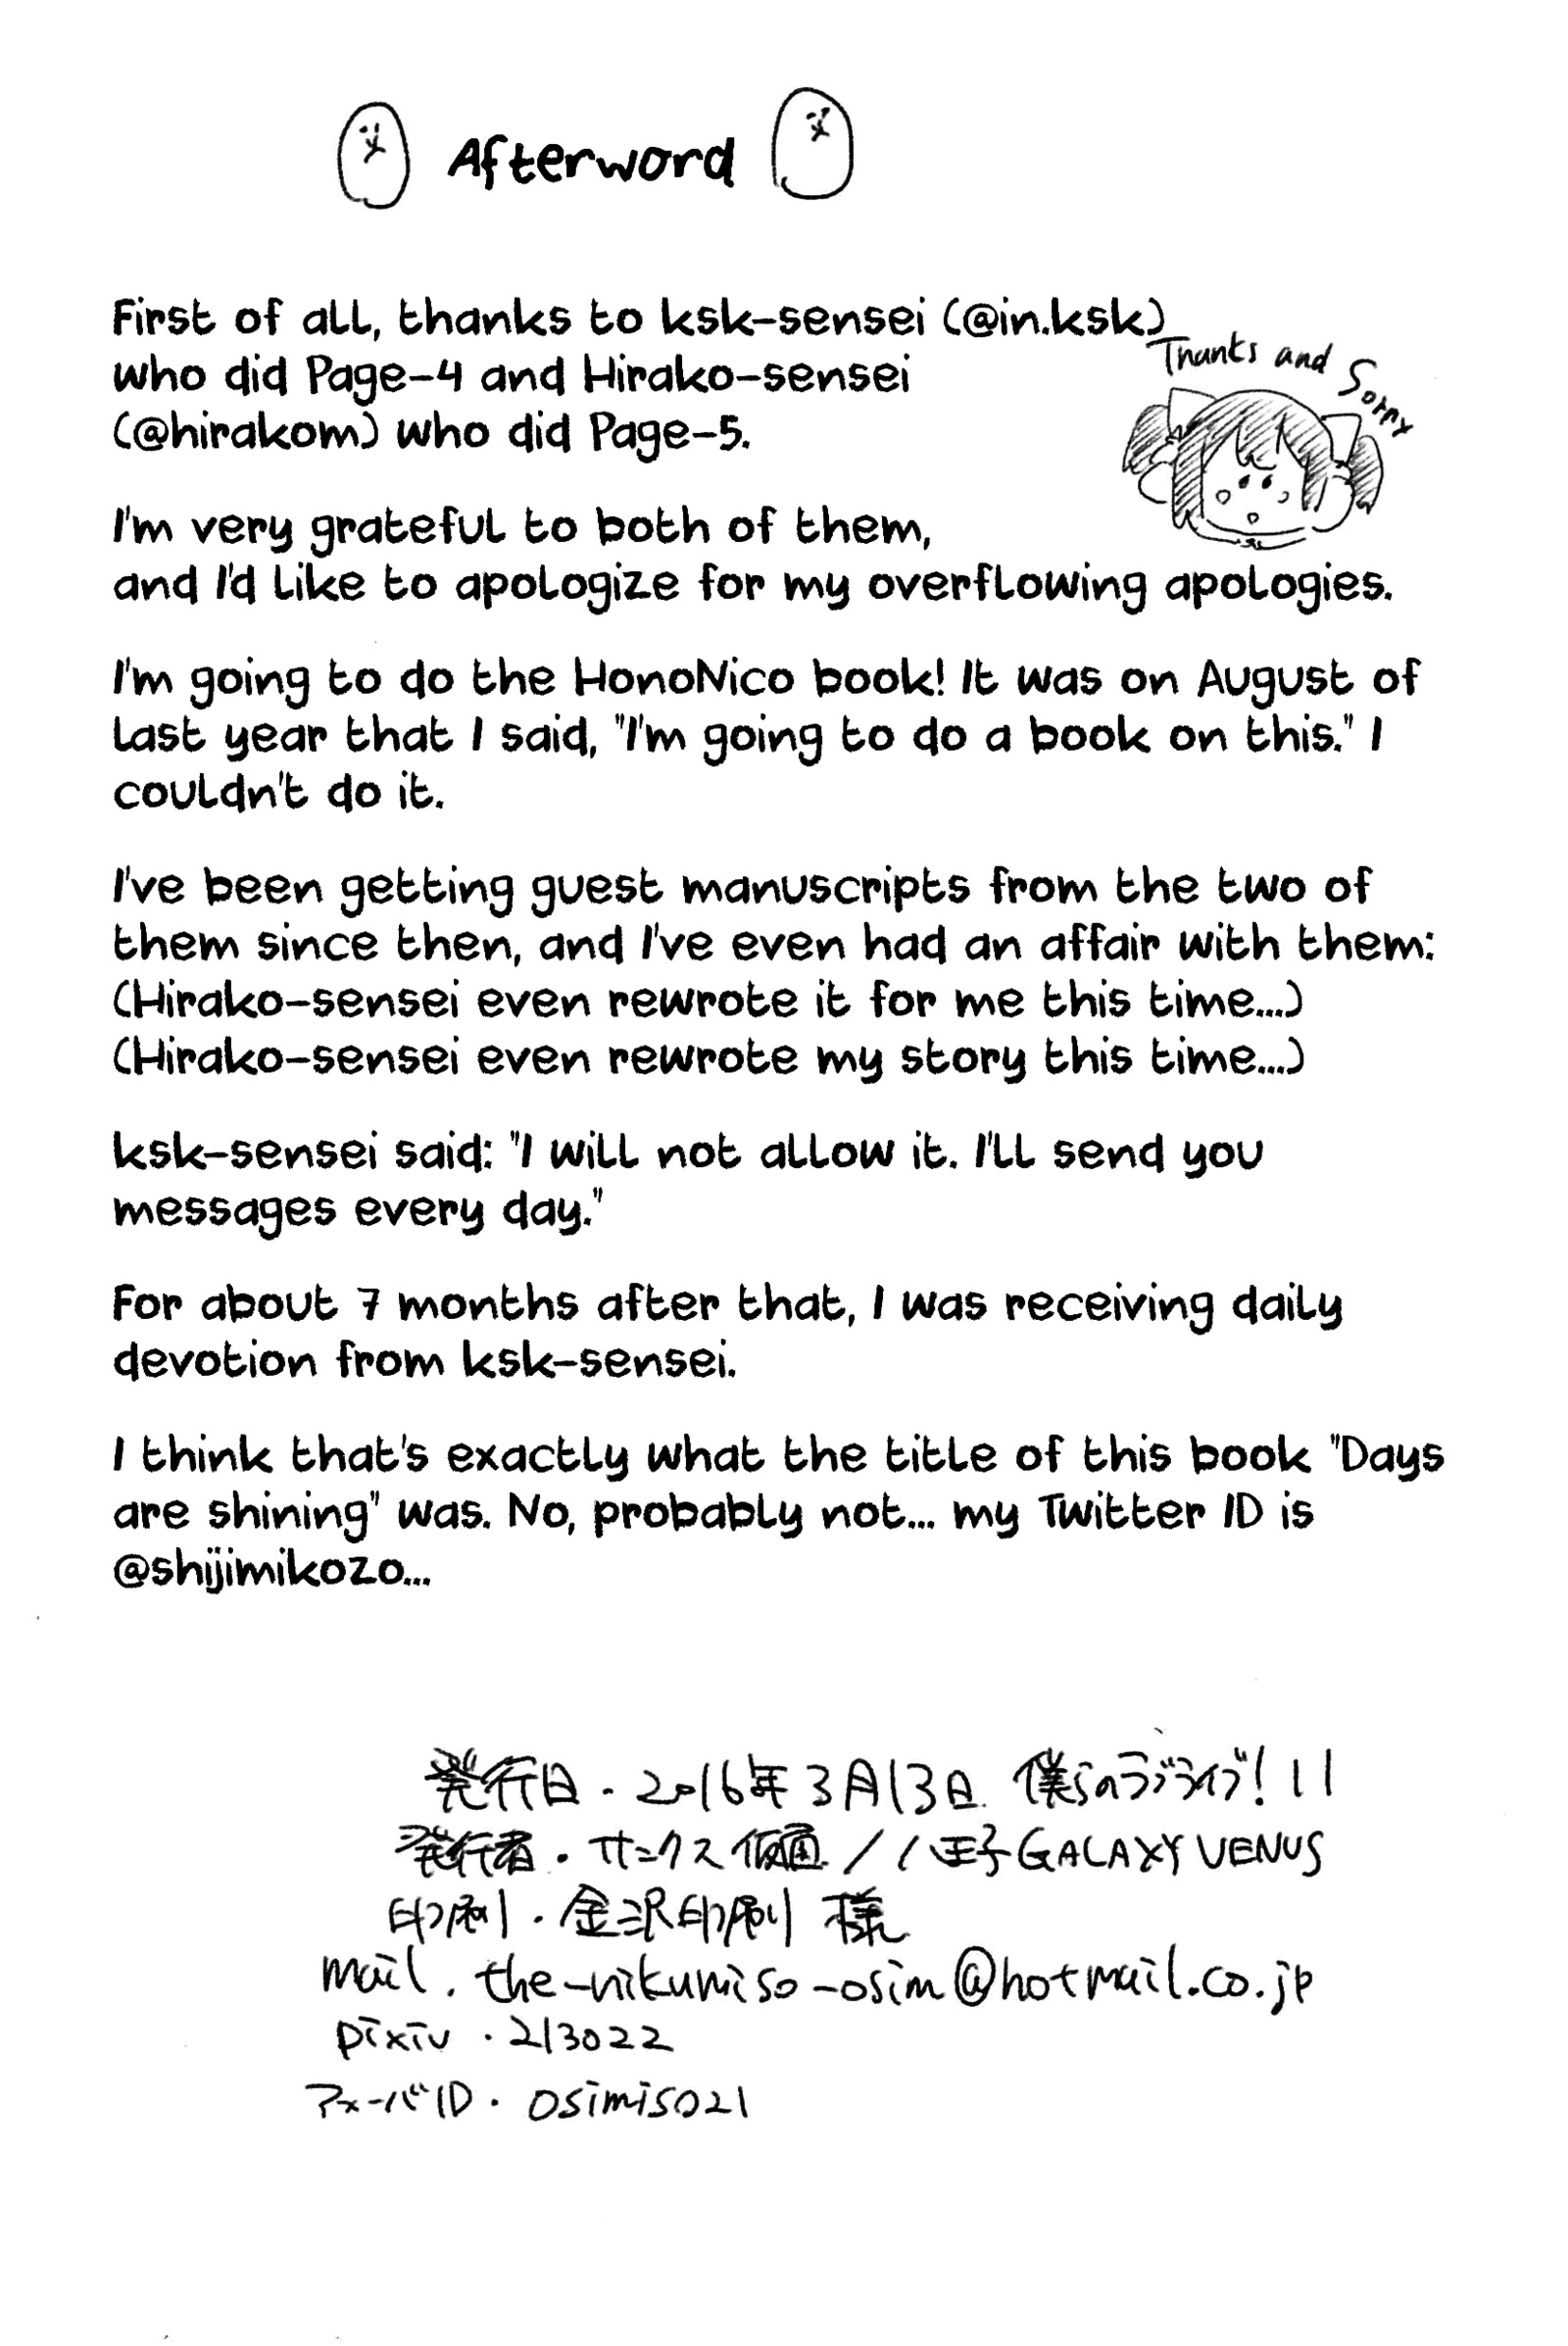 Afterword
First of all, thanks to ksk-sensei (@in.ksk)
who did Page-4 and Hirako-sensei
(@hirakom) who did Page-5.
Thanks and Sorry
I'm very grateful to both of them,
and I'd like to apologize for my overflowing apologies.
I'm going to do the HonoNico book! It was on August of
last year that I said, "I'm going to do a book on this." I
couldn't do it.
I've been getting guest manuscripts from the two of
them since then, and I've even had an affair with them:
(Hirako-sensei even rewrote it for me this time...)
(Hirako-sensei even rewrote my story this time....)
ksk-sensei said: "I will not allow it. I'll send you
messages every day."
For about 7 months after that, I was receiving daily
devotion from ksk-sensei.
I think that's exactly what the title of this book "Days
are shining" was. No, probably not... my Twitter ID is
@shijimikozo...
発行日・2016年3月13日 僕らのラブライブ!11
発行者・サックス仮面/八王子GALAXY VENUS
印刷・金沢印刷 様
mail. the-nikumiso-osim@hotmail.co.jp
pixiv・213022
アメーバID・osimiso21